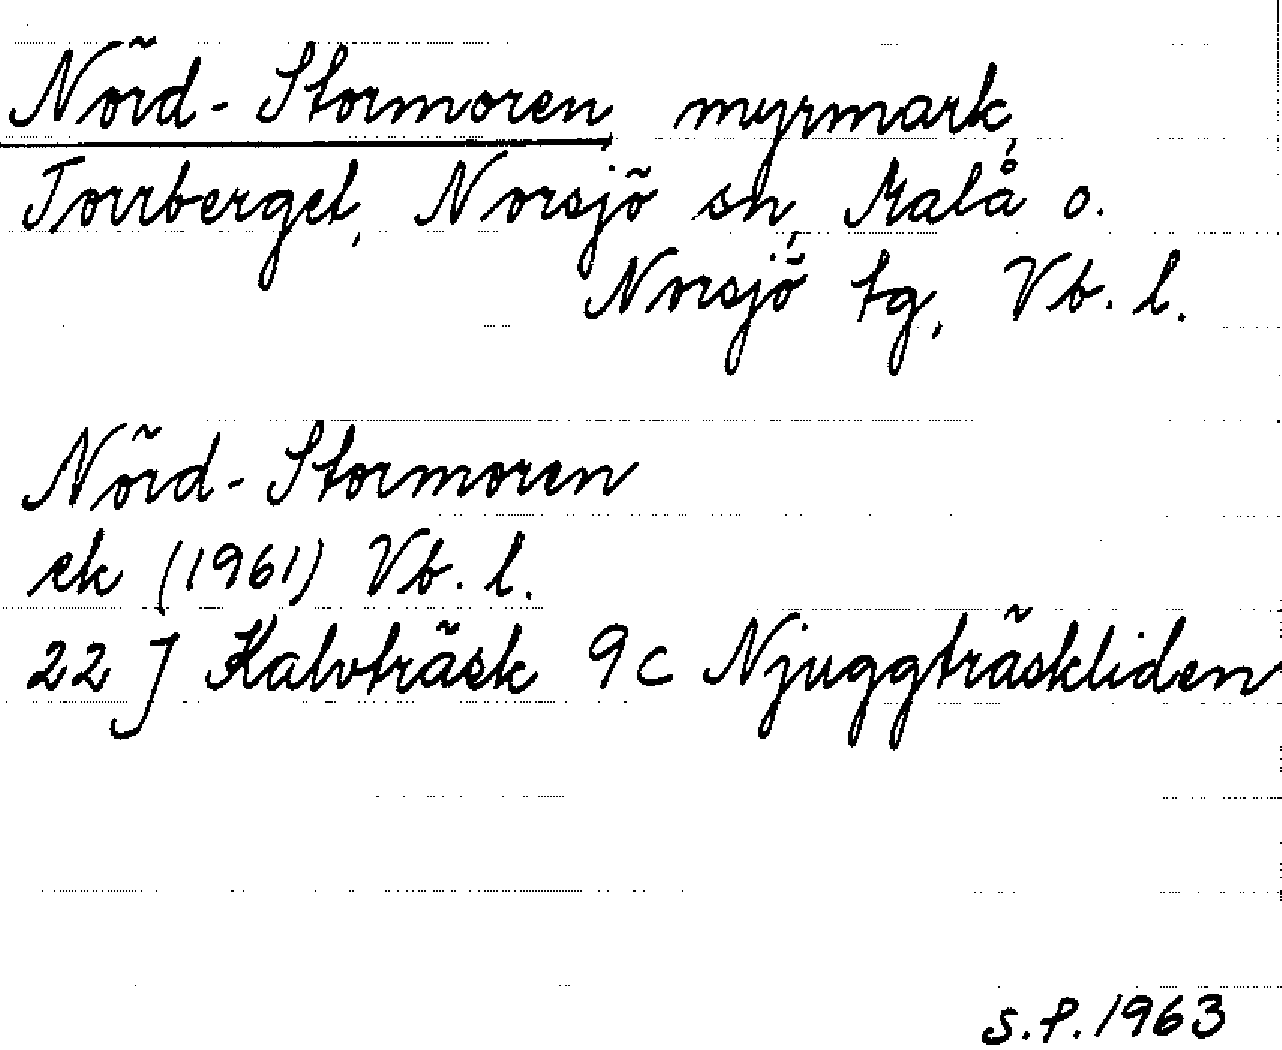 Nörd-Stormoren myrmark,
Torrberget, Norsjö sn, Malå o.
Norsjö tg, Vb. l.
Nörd-Stormoren
ek (1961) Vb. l.
22 J Kalvträsk 9c Njuggträskliden
S.P. 1963